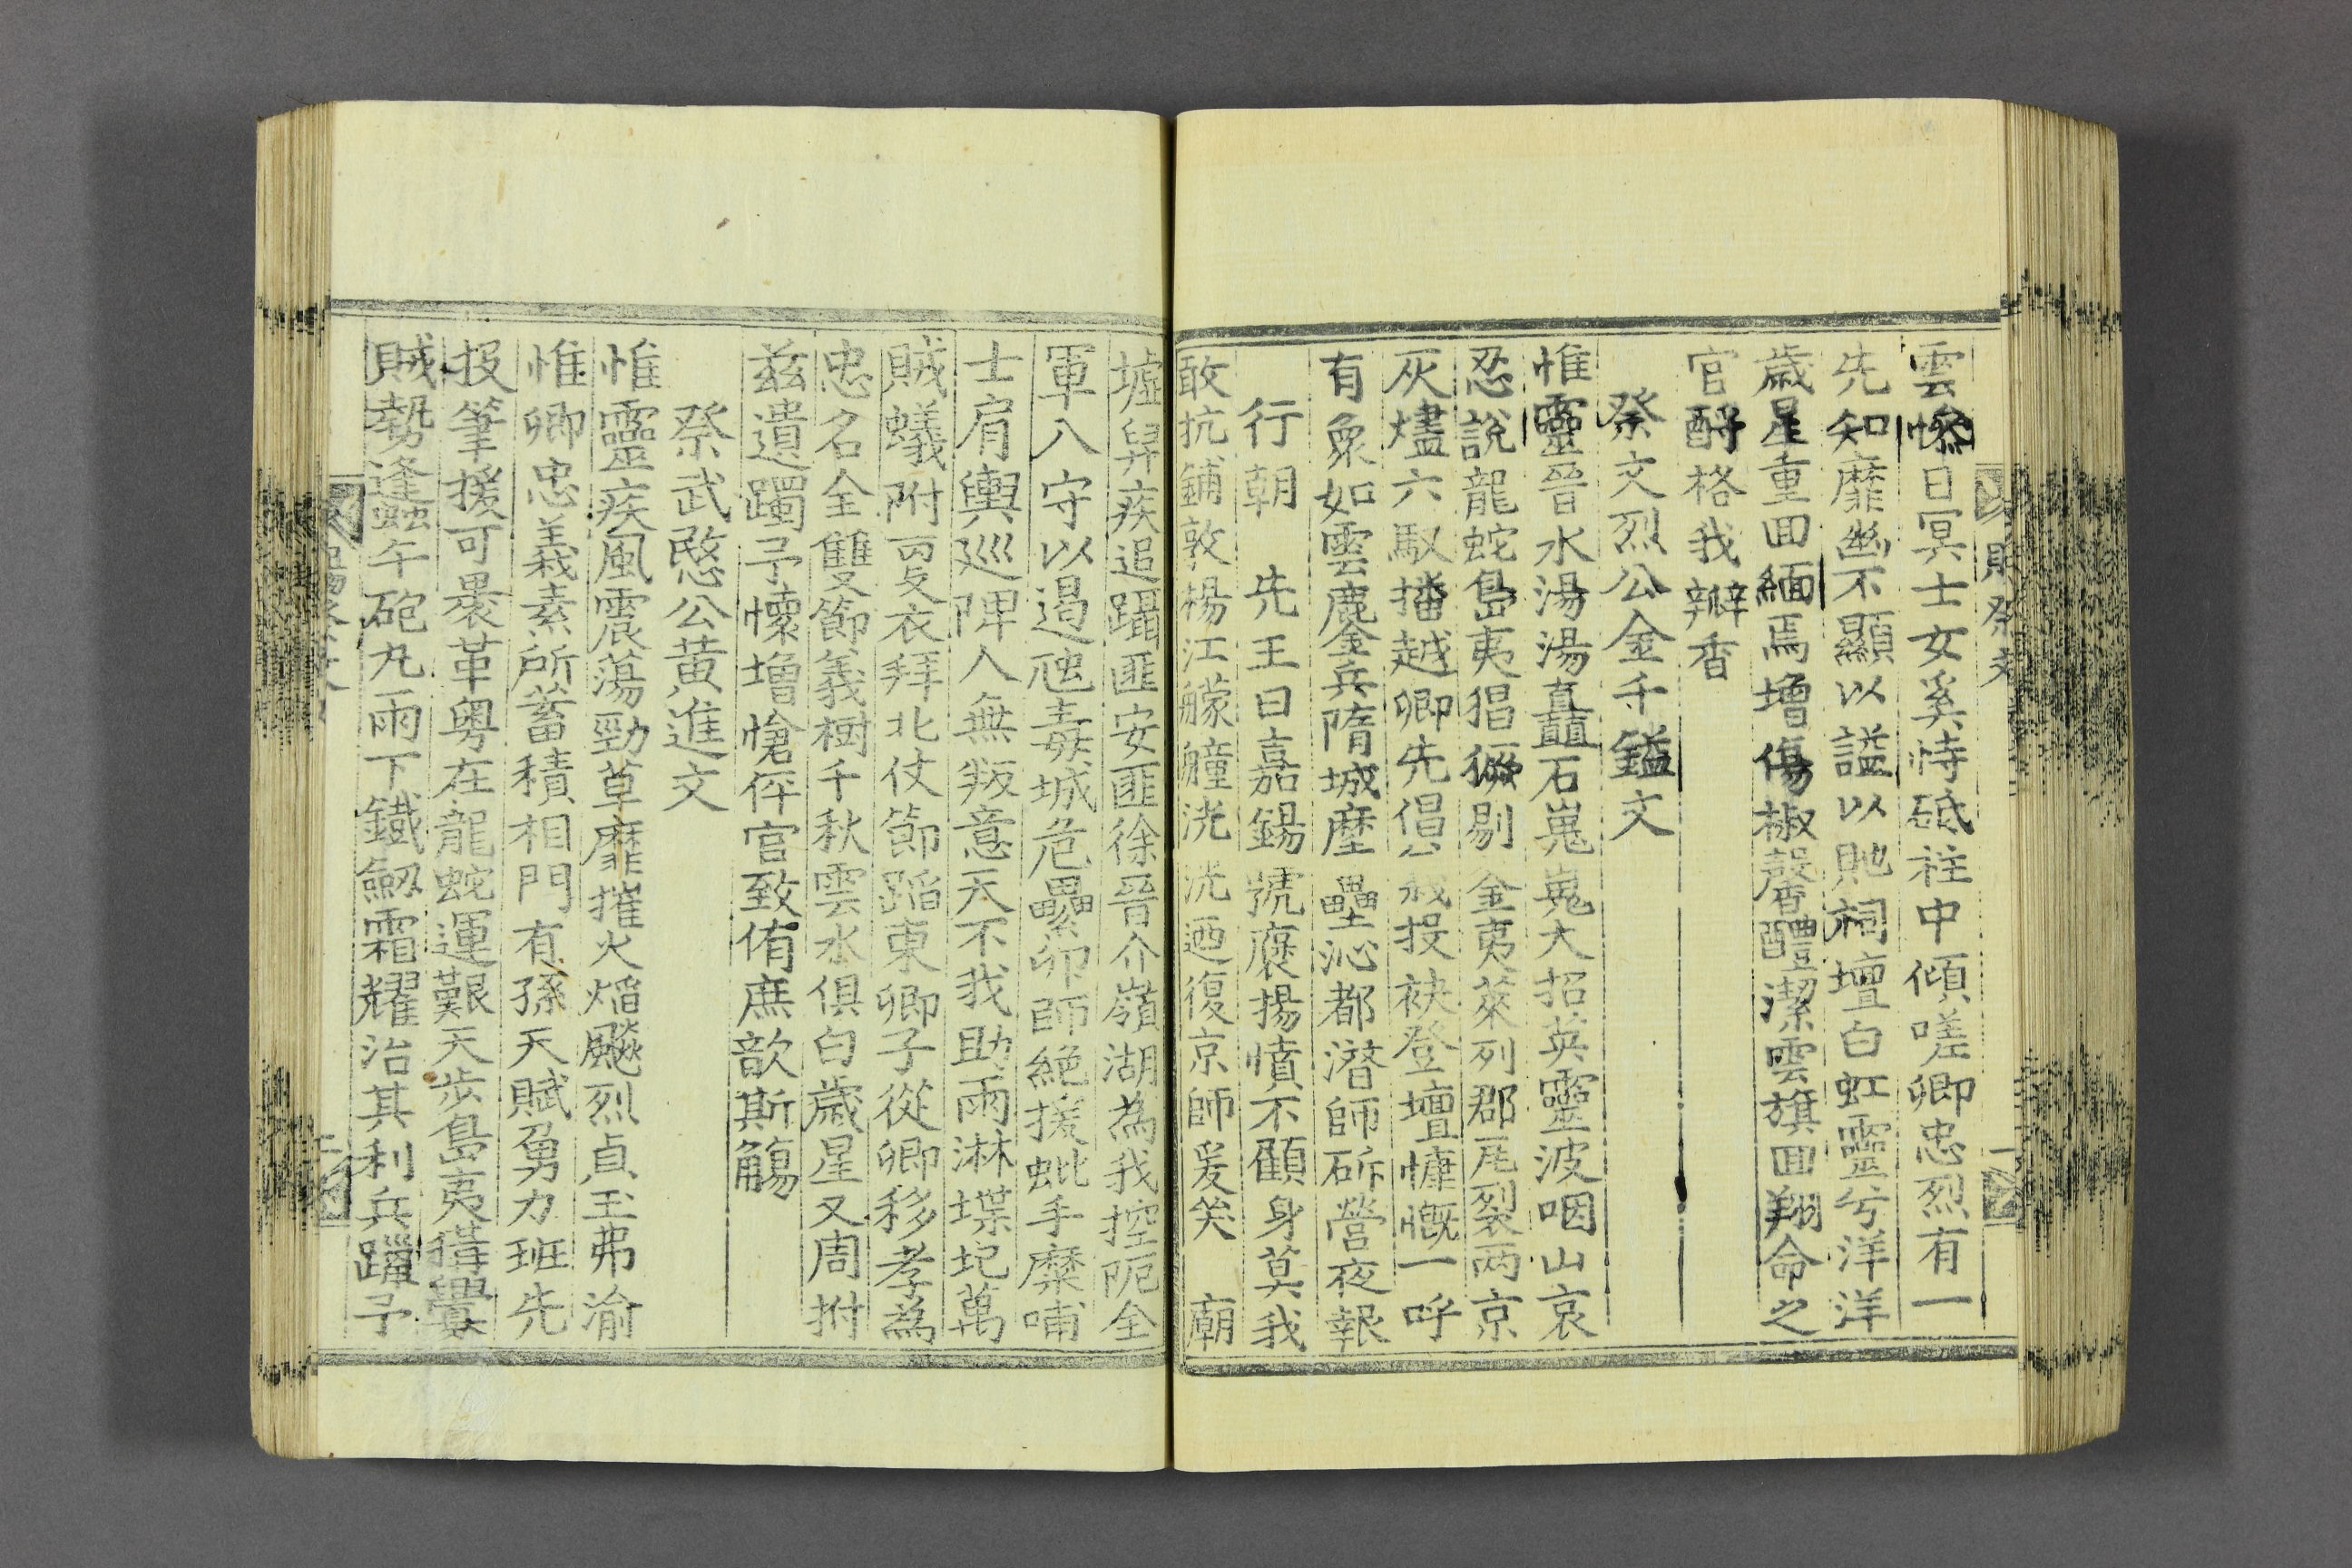 雲慘日冥士女奚恃砥柱中傾嗟卿忠烈有一
先知靡幽不顯以謚以貤祠壇白虹靈兮洋洋
歲星重回緬焉增傷椒馨醴潔雲旗回翔命之
官酹格我瓣香
祭文烈公金千鎰文
惟靈晉水湯湯矗石嵬嵬大招英靈波咽山哀
忍說龍蛇島夷猖獗剔金夷萊列郡瓦裂兩京
灰燼六馭播越卿先倡義投袂登壇慷慨一呼
有衆如雲鏖兵隋城塵壘沁都潛師斫營夜報
行朝 先王曰嘉錫號褒揚憤不顧身莫我
敢抗鋪敦楊江艨艟洸洸迺復京師爰笑 廟
墟舁疾追躡匪安匪徐晉介嶺湖為我控阨全
軍入守以遏虺毒城危纍卵師絶援蚍手糜哺
士肩輿巡陴人無叛意天不我助雨淋堞圮萬
賊蟻附更衣拜北仗節蹈東卿子從卿移孝為
忠名全雙節義樹千秋雲水俱白歲星又周拊
茲遺躅予懷增愴伻官致侑庶歆斯觴
祭武愍公黃進文
惟靈疾風震蕩勁草靡摧火焰飈烈貞玉弗渝
惟卿忠義素所蓄積相門有孫天賦勇力班先
投筆援可裹革粤在龍蛇運艱天步島夷搆釁
賊勢逢蝱午砲丸雨下鐵劒霜耀治其利兵躍予
貤祭文